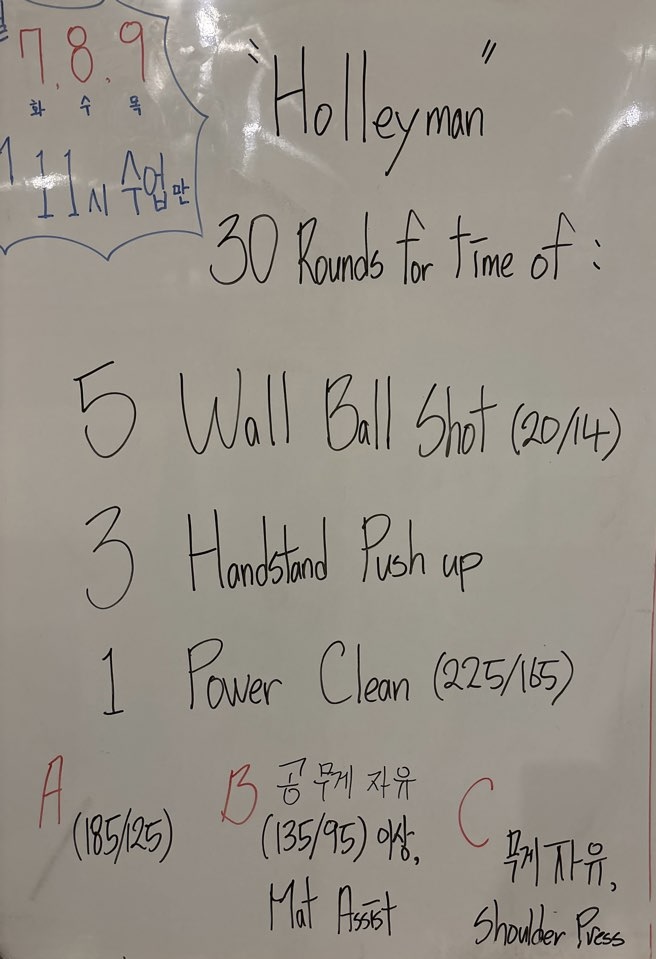 7. 8. 9
화 수 목
11시 수업만
"Holleyman"
30 Rounds for time of :
5 Wall Ball Shot (20/14)
3 Handstand Push up
1 Power Clean (225/165)
A
(185/125)
B 공 무게 자유
(135/95) 이상,
Mat Assist
C
무게 자유,
Shoulder Press